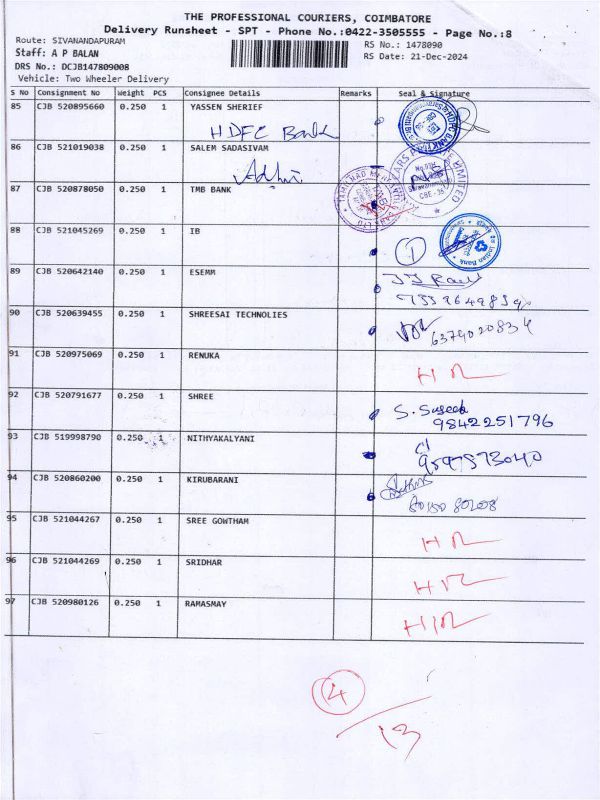 THE PROFESSIONAL COURIERS, COIMBATORE
Delivery Runsheet - SPT - Phone No.:0422-3505555 - Page No.:8
Route: SIVANANDAPURAM
RS No.: 1478090
Staff: A P BALAN
RS Date: 21-Dec-2024
DRS No.: DCJB147809008
Vehicle: Two Wheeler Delivery
S No Consignment No Weight PCS Consignee Details Remarks Seal & Signature
85 CJB 520895660 0.250 1 YASSEN SHERIEF
HDFC Bank
86 CJB 521019038 0.250 1 SALEM SADASIVAM
87 CJB 520878050 0.250 1 TMB BANK
88 CJB 521045269 0.250 1 IB
1
89 CJB 520642140 0.250 1 ESEMM
90 CJB 520639455 0.250 1 SHREESAI TECHNOLIES
6374020834
91 CJB 520975069 0.250 1 RENUKA
92 CJB 520791677 0.250 1 SHREE
9842251796
93 CJB 519998790 0.250 1 NITHYAKALYANI
94 CJB 520860200 0.250 1 KIRUBARANI
95 CJB 521044267 0.250 1 SREE GOWTHAM
96 CJB 521044269 0.250 1 SRIDHAR
97 CJB 520980126 0.250 1 RAMASMAY
4
13